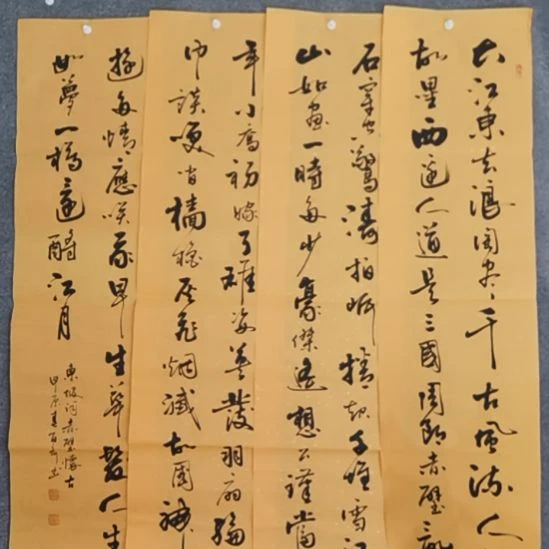 大江東去浪淘盡千古風流人
故壘西邊人道是三國周郎赤壁亂
石穿空驚濤拍岸捲起千堆雪江
山如畫一時多少豪傑遙想公瑾當
年小喬初嫁了雄姿英發羽扇綸
巾談笑間檣櫓灰飛烟滅故國神
遊多情應笑我早生華髮人生
如夢一樽還酹江月
東坡詞赤壁懷古